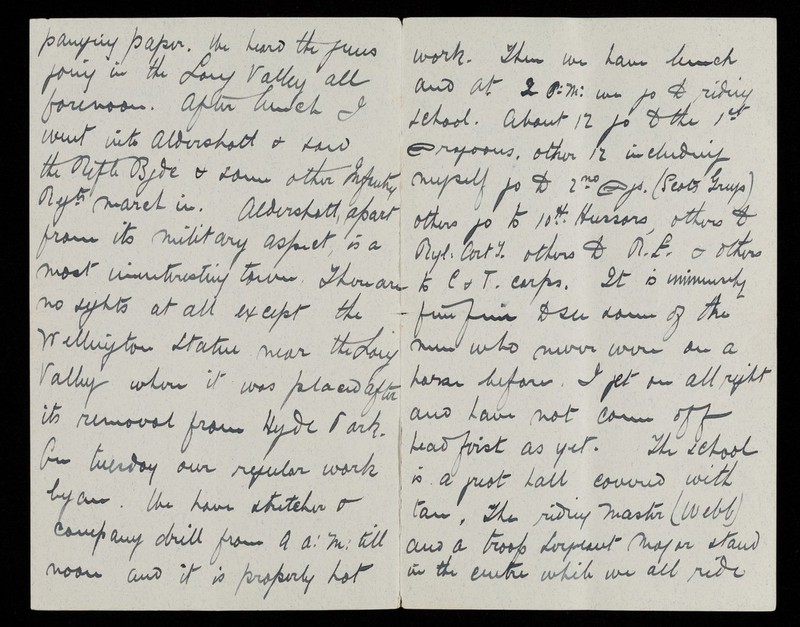 panying paper. We heard the guns
going in the Long Valley all
forenoon. After lunch I
went into Aldershott & saw
the Rifle Bgde & some other Infantry
Regts march in. Aldershott, apart
from its military aspect, is a
most uninteresting town. There are
no sights at all except the
Wellington statue near the Long
Valley where it was placed after
its removal from Hyde Park.
On tuesday our regular work
began. We have stretcher &
company drill from 9 a:m: till
noon and it is properly hot
work. Then we have lunch
and at 2 P:M: we go to riding
school. About 12 go to the 1st
Dragoons, other 12 including
myself go to 2nd Dgs. (Scots Greys)
others go to 10th Hussars, others to
Ryl. Art y. others to R.E. & others
to C & T. corps. It is immensely
fine fun to see some of the
men who never were on a
horse before. I get on all right
and have not come off
head first as yet. The school
is a great hall covered with
tan. The riding master (Webb)
and a troop sergeant major stand
in the centre while we all ride